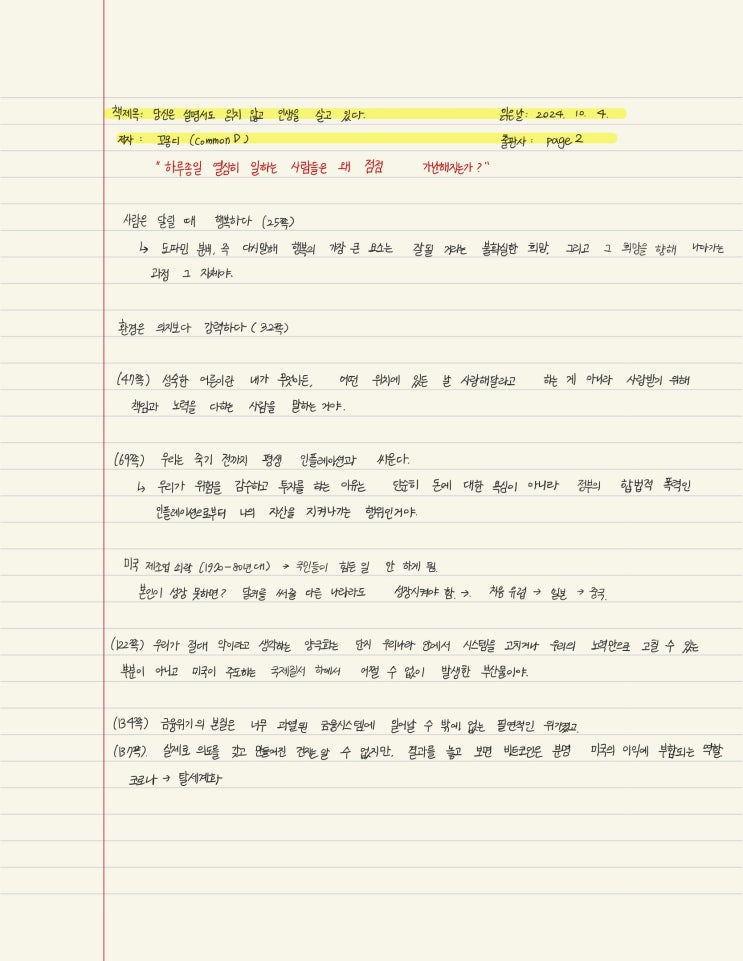 책제목: 당신은 설명서도 읽지 않고 인생을 살고 있다. 읽은날: 2024. 10. 4.
저자 : 고용디 (Common D) 출판사 : page 2
"하루종일 열심히 일하는 사람들은 왜 점점 가난해지는가?"
사람은 달릴 때 행복하다 (25쪽)
↳ 도파민 분배, 즉 다시말해 행복의 가장 큰 요소는 잘될 거라는 불확실한 희망, 그리고 그 희망을 향해 나아가는
과정 그 자체야.
환경은 의지보다 강력하다. (32쪽)
(47쪽) 성숙한 어른이란 내가 무엇이든, 어떤 위치에 있든 날 사랑해달라고 하는 게 아니라 사랑받기 위해
책임과 노력을 다하는 사람을 말하는 거야.
(69쪽) 우리는 죽기 전까지 평생 인플레이션과 싸운다.
↳ 우리가 위험을 감수하고 투자를 하는 이유는 단순히 돈에 대한 욕심이 아니라 정부의 합법적 폭력인
인플레이션으로부터 나의 자산을 지켜나가는 행위인거야.
미국 제조업 쇠락 (1970-80년대) → 국민들이 힘든 일 안 하게 됨.
본인이 성장 못하면? 달러를 써줄 다른 나라라도 성장시켜야 함. → 처음 유럽 → 일본 → 중국.
(122쪽) 우리가 절대 악이라고 생각하는 양극화는 단지 우리나라 안에서 시스템을 고치거나 우리의 노력만으로 고칠 수 있는
부분이 아니고 미국이 주도하는 국제질서 하에서 어쩔 수 없이 발생한 부산물이야.
(134쪽) 금융위기의 본질은 너무 과열된 금융시스템에 일어날 수 밖에 없는 필연적인 위기였고,
(137쪽). 실제로 의도를 갖고 만들어진 건지는 알 수 없지만, 결과를 놓고 보면 비트코인은 분명 미국의 이익에 부합되는 역할.
코로나 → 탈세계화